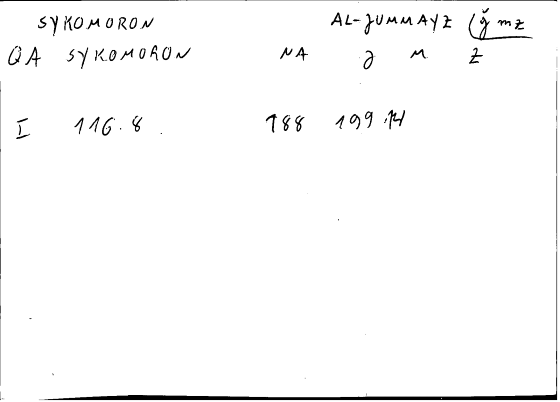 SYKOMORON AL-JUMMAYZ (ǧmz
QA SYKOMORON NA J M Z
I 116.8 188 199.14